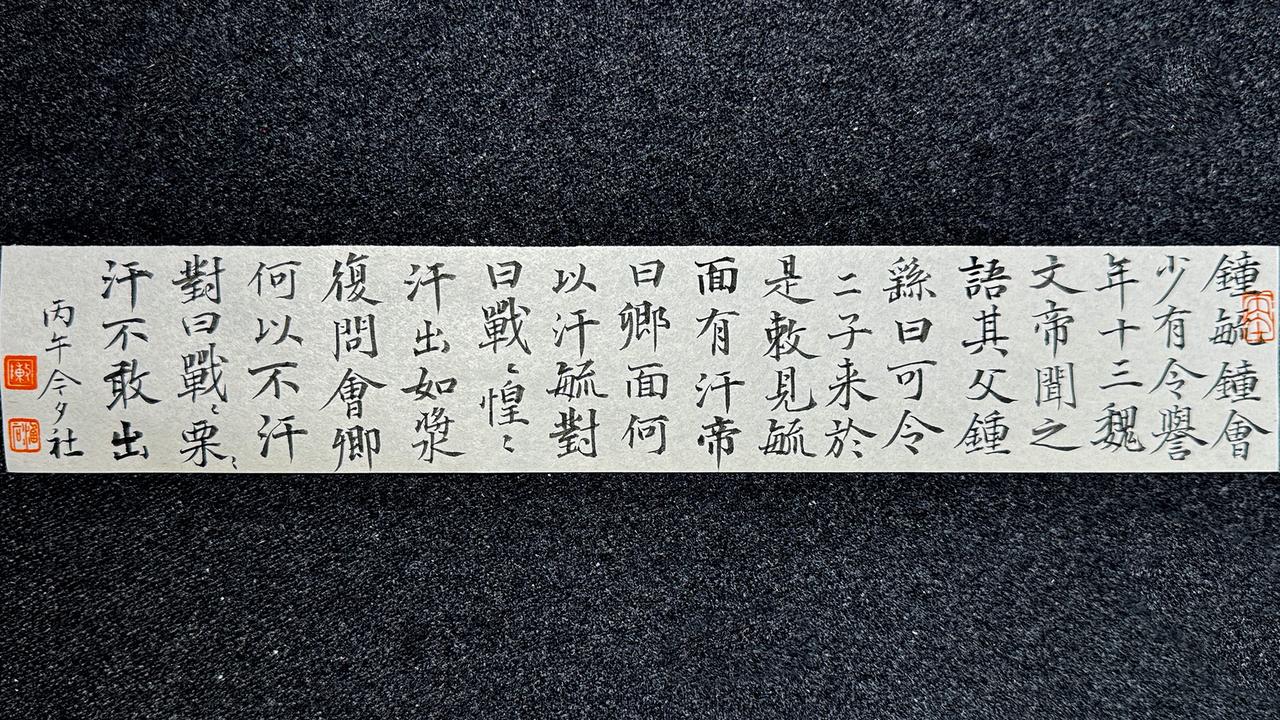 鍾毓鍾會
少有令譽
年十三魏
文帝聞之
語其父鍾
繇曰可令
二子来於
是敕見毓
面有汗帝
曰卿面何
以汗毓對
曰戰〻惶〻
汗出如漿
復問會卿
何以不汗
對曰戰〻栗〻
汗不敢出
丙午今夕社